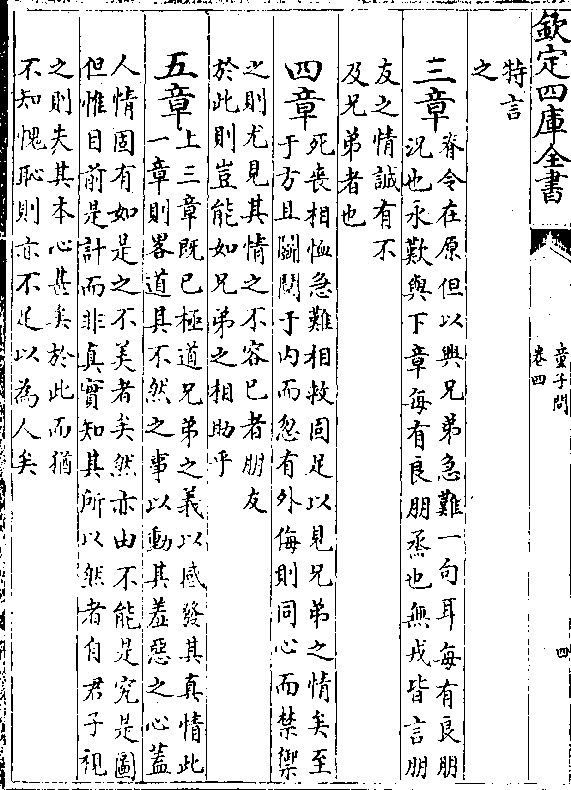 欽定四庫全書
童子問
卷四
四
特言
之
三章
脊令在原但以興兄弟急難一句耳每有良朋
況也永歎與下章每有良朋烝也無戎皆言朋
友之情誠有不
及兄弟者也
四章
死喪相恤急難相救固足以見兄弟之情矣至
于方且鬩鬭于内而忽有外侮則同心而禁禦
之則尤見其情之不容已者朋友
於此則豈能如兄弟之相助乎
五章
上三章既已極道兄弟之義以感發其真情此
一章則畧道其不然之事以動其羞惡之心蓋
人情固有如是之不美者矣然亦由不能是究是圖
但惟目前是計而非真實知其所以然者自君子視
之則失其本心甚矣於此而猶
不知愧恥則亦不足以為人矣